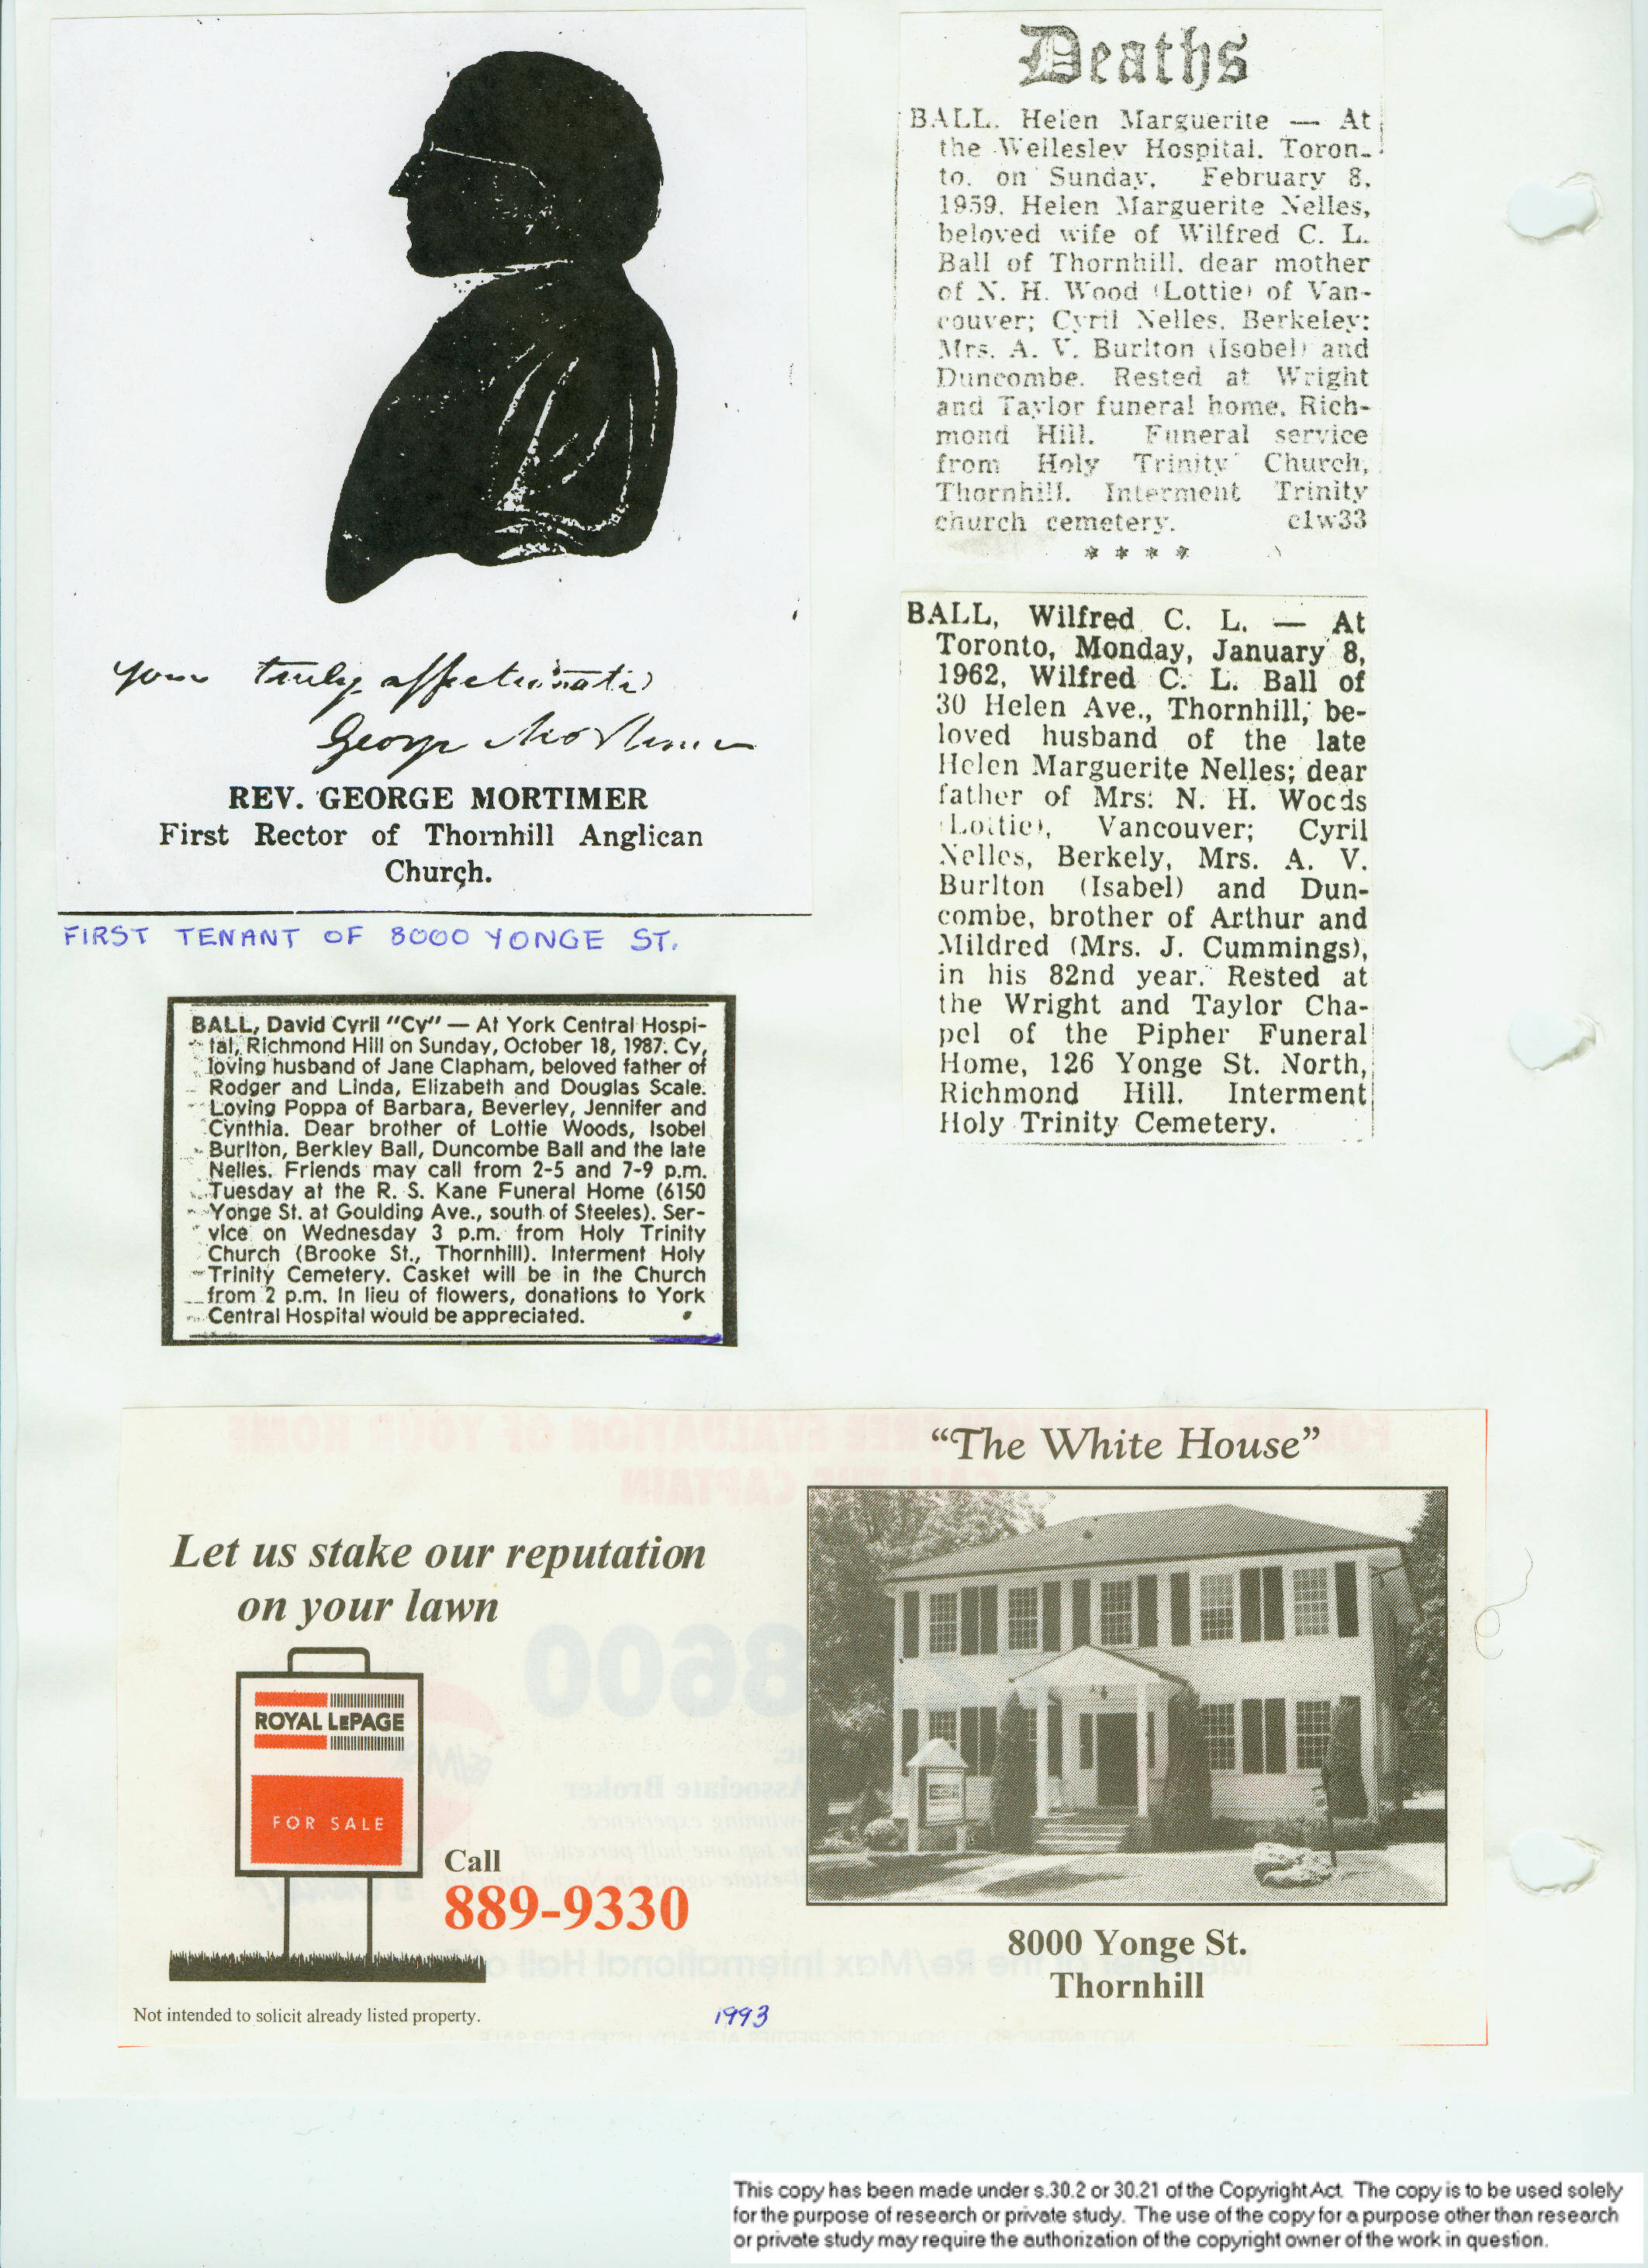 yours truly affectionate
George Mortimer
REV. GEORGE MORTIMER
First Rector of Thornhill Anglican
Church.
FIRST TENANT OF 8000 YONGE ST.
BALL, David Cyril "Cy" — At York Central Hospi-
tal, Richmond Hill on Sunday, October 18, 1987. Cy,
loving husband of Jane Clapham, beloved father of
Rodger and Linda, Elizabeth and Douglas Scale.
Loving Poppa of Barbara, Beverley, Jennifer and
Cynthia. Dear brother of Lottie Woods, Isobel
Burlton, Berkley Ball, Duncombe Ball and the late
Nelles. Friends may call from 2-5 and 7-9 p.m.
Tuesday at the R. S. Kane Funeral Home (6150
Yonge St. at Goulding Ave., south of Steeles). Ser-
vice on Wednesday 3 p.m. from Holy Trinity
Church (Brooke St., Thornhill). Interment Holy
Trinity Cemetery. Casket will be in the Church
from 2 p.m. In lieu of flowers, donations to York
Central Hospital would be appreciated.
Deaths
BALL, Helen Marguerite — At
the Wellesley Hospital, Toron-
to, on Sunday, February 8,
1959, Helen Marguerite Nelles,
beloved wife of Wilfred C. L.
Ball of Thornhill, dear mother
of N. H. Wood (Lottie) of Van-
couver; Cyril Nelles, Berkeley;
Mrs. A. V. Burlton (Isobel) and
Duncombe. Rested at Wright
and Taylor funeral home, Rich-
mond Hill. Funeral service
from Holy Trinity Church,
Thornhill. Interment Trinity
church cemetery. c1w33
* * * *
BALL, Wilfred C. L. — At
Toronto, Monday, January 8,
1962, Wilfred C. L. Ball of
30 Helen Ave., Thornhill, be-
loved husband of the late
Helen Marguerite Nelles; dear
father of Mrs. N. H. Woods
(Lottie), Vancouver; Cyril
Nelles, Berkely, Mrs. A. V.
Burlton (Isabel) and Dun-
combe, brother of Arthur and
Mildred (Mrs. J. Cummings),
in his 82nd year. Rested at
the Wright and Taylor Cha-
pel of the Pipher Funeral
Home, 126 Yonge St. North,
Richmond Hill. Interment
Holy Trinity Cemetery.
Let us stake our reputation
on your lawn
ROYAL LEPAGE
FOR SALE
Call
889-9330
Not intended to solicit already listed property.
1993
"The White House"
8000 Yonge St.
Thornhill
This copy has been made under s.30.2 or 30.21 of the Copyright Act. The copy is to be used solely
for the purpose of research or private study. The use of the copy for a purpose other than research
or private study may require the authorization of the copyright owner of the work in question.